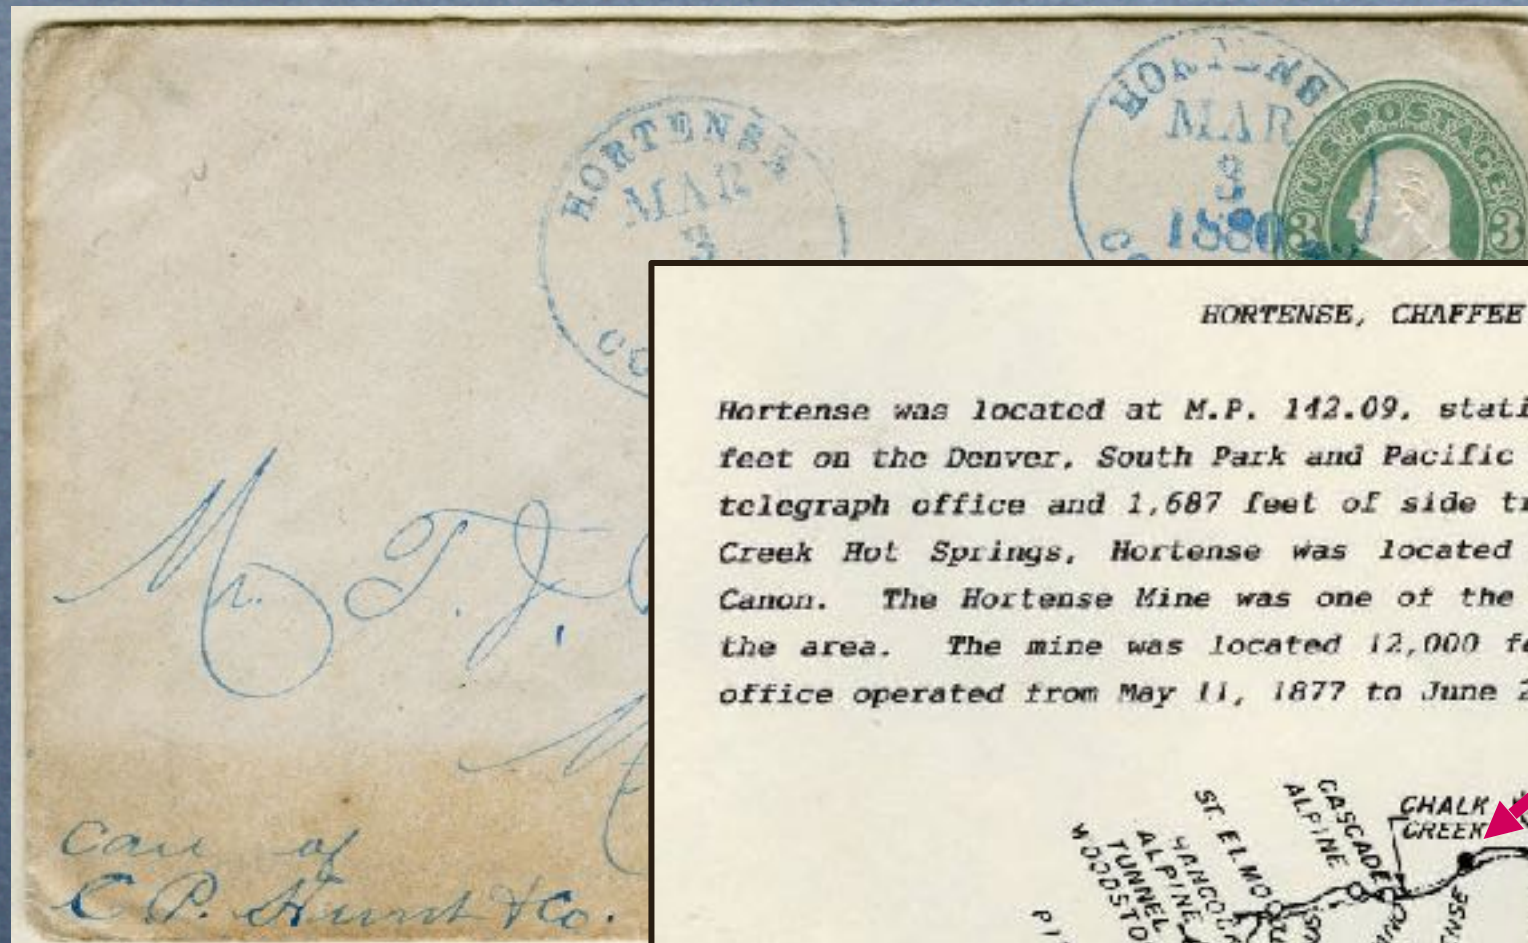 HORTENSE
MAR
3
CO
HORTENS
MAR
3
1880
CO
U.S. POSTAGE
3 3
Mr. T. J.
M
Care of
C. P. Hunt & Co.
HORTENSE, CHAFFEE
Hortense was located at M.P. 142.09, stati
feet on the Denver, South Park and Pacific
telegraph office and 1,687 feet of side tr
Creek Hot Springs, Hortense was located
Canon. The Hortense Mine was one of the
the area. The mine was located 12,000 fe
office operated from May 11, 1877 to June 2
CHALK
CREEK
CASCADE
ALPINE
ST. ELMO
HANCOC
ALPINE
TUNNEL
WOODSTO
PI
NSE